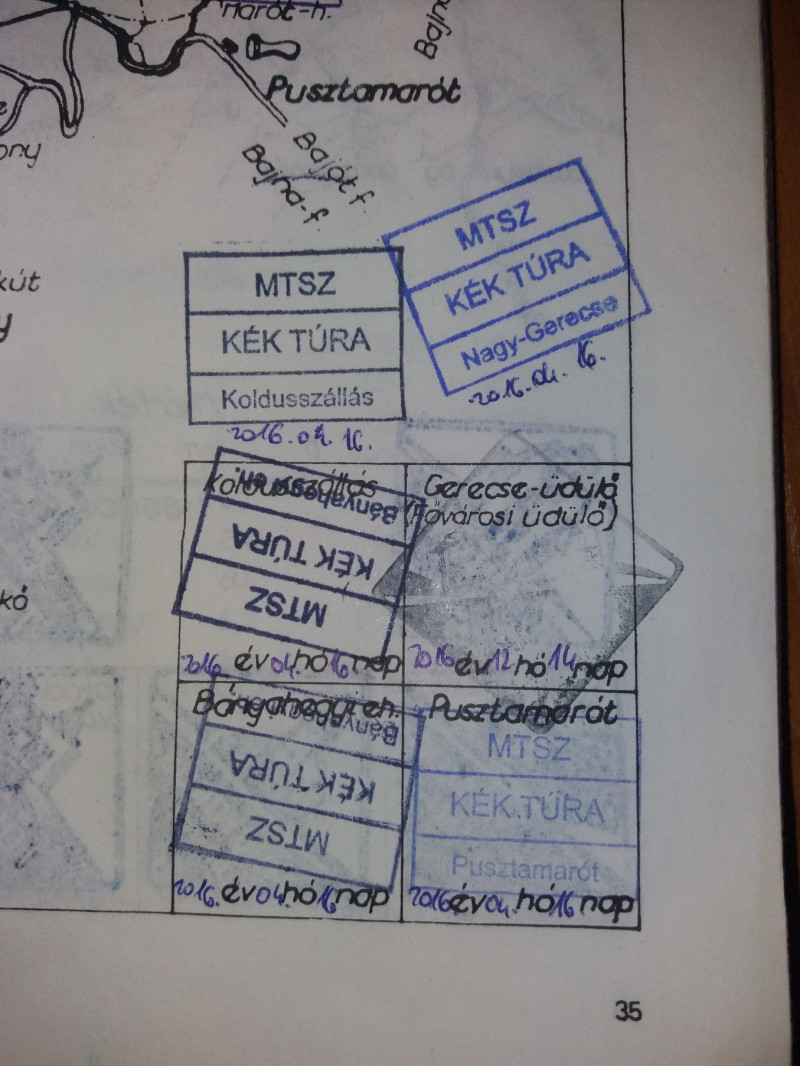 Marót-h.
Bajna
Pusztamarót
ony
Bajót f.
Bajna-f.
kút
y
MTSZ
KÉK TÚRA
Nagy-Gerecse
2016. 04. 16.
MTSZ
KÉK TÚRA
Koldusszállás
2016. 04. 16.
Koldusszállás
Bányahegyi eh.
KÉK TÚRA
MTSZ
2016 év 04. hó 16 nap
Gerecse-üdülő
(Fővárosi üdülő)
2016 év 12 hó 14 nap
kó
Bányahegyi eh.
Bányahegyi eh.
KÉK TÚRA
MTSZ
2016. év 04. hó 16 nap
Pusztamarót
MTSZ
KÉK TÚRA
Pusztamarót
2016 év 04. hó 16 nap
35